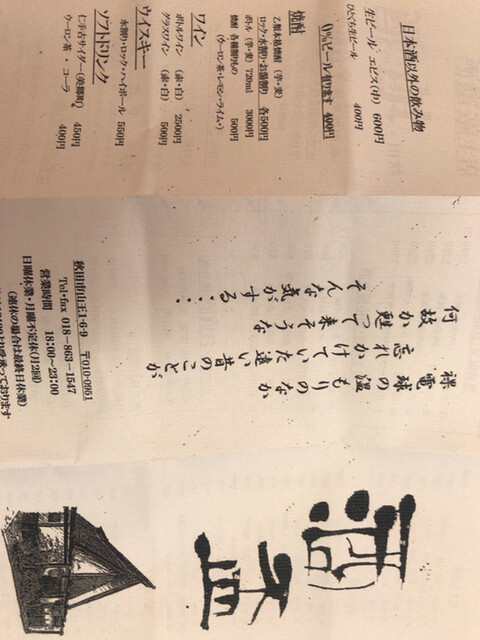 日本酒以外の飲み物
生ビール ヱビス(中) 600円
ひとくち生ビール 400円
0%ビール有ります 400円
焼酎
乙類本格焼酎 (芋・麦)
ロック・水割り・お湯割り 各500円
ボトル (芋・麦) 720ml 3000円
焼酎 各種割りもの 500円
(ウーロン茶・レモン・ライム・)
ワイン
ボトルワイン (赤・白) 2500円
グラスワイン (赤・白) 500円
ウイスキー
水割り・ロック・ハイボール 550円
ソフトドリンク
仁手古サイダー(美郷町) 450円
ウーロン茶・コーラ 400円
裸電球の温もりのなか
忘れかけていた遠い昔のことが
何故か甦って来そうな
そんな気がする・・・・
秋田市山王1-6-9 〒010-0951
Tel・fax 018-863-1547
営業時間 18:00~23:00
日曜休業・月曜不定休(月2回)
(連休の場合は最終日休業)
酒盃